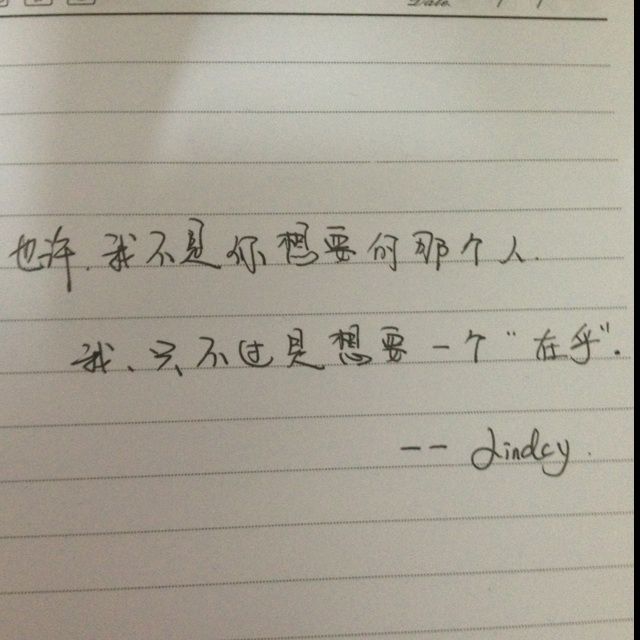 Date
也许.我不是你想要的那个人.
我、只不过是想要一个“在乎”.
-- Lindcy.